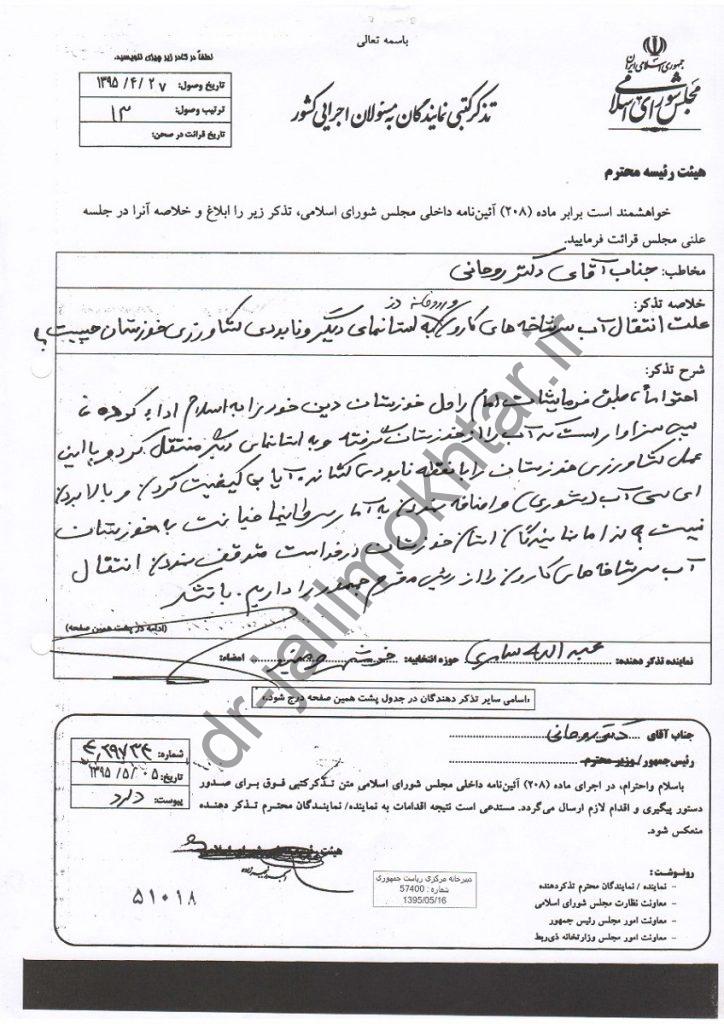 باسمه تعالی
جمهوری اسلامی ایران
مجلس شورای اسلامی
تذکر کتبی نمایندگان به مسئولان اجرایی کشور
لطفاً در کادر زیر چیزی ننویسید.
تاریخ وصول: ۱۳۹۵/۴/۲۷
ترتیب وصول: ۱۳
تاریخ قرائت در صحن:
هیئت رئیسه محترم
خواهشمند است برابر ماده (۲۰۸) آئین‌نامه داخلی مجلس شورای اسلامی، تذکر زیر را ابلاغ و خلاصه آنرا در جلسه
علنی مجلس قرائت فرمایید.
مخاطب: جناب آقای دکتر روحانی
خلاصه تذکر:
علت انتقال آب سرشاخه های کارون و رودخانه دز به استانهای دیگر و نابودی کشاورزی خوزستان چیست؟
شرح تذکر:
احتراماً، طبق فرمایشات امام راحل خوزستان دین خود را به اسلام اداء کرده
سزاوار است که آب را از خوزستان گرفته و به استانهای دیگر منتقل کرد و با این
عمل کشاورزی خوزستان را به نقطه نابودی کشاند. آیا بی کیفیت کردن و بالا بردن
ای سی آب (شوری) و اضافه شدن به آمار سرطانیها خیانت به خوزستان
نیست؟ لذا ما نمایندگان استان خوزستان درخواست متوقف شدن انتقال
آب سرشاخه های کارون را از رئیس محترم جمهور را داریم. با تشکر
(ادامه در پشت همین صفحه)
نماینده تذکر دهنده: عبدالله سامری حوزه انتخابیه: خرمشهر امضاء:
«اسامی سایر تذکر دهندگان در جدول پشت همین صفحه درج شود.»
جناب آقای دکتر روحانی
رئیس جمهور / وزیر محترم
شماره: ۴۰۲۹۷۳۴
تاریخ: ۱۳۹۵/۵/۰۵
پیوست: دارد
باسلام واحترام، در اجرای ماده (۲۰۸) آئین‌نامه داخلی مجلس شورای اسلامی متن تذکرکتبی فوق برای صدور
دستور پیگیری و اقدام لازم ارسال می‌گردد. مستدعی است نتیجه اقدامات به نماینده/ نمایندگان محترم تذکر دهنده
منعکس شود.
هیئت رئیسه مجلس شورای اسلامی
۵۱۰۱۸
دبیرخانه مرکزی ریاست جمهوری
شماره : 57400
1395/05/16
رونوشت:
- نماینده / نمایندگان محترم تذکردهنده
- معاونت نظارت مجلس شورای اسلامی
- معاونت امور مجلس رئیس جمهور
- معاونت امور مجلس وزارتخانه ذی‌ربط
dr-jalilmokhtar.ir